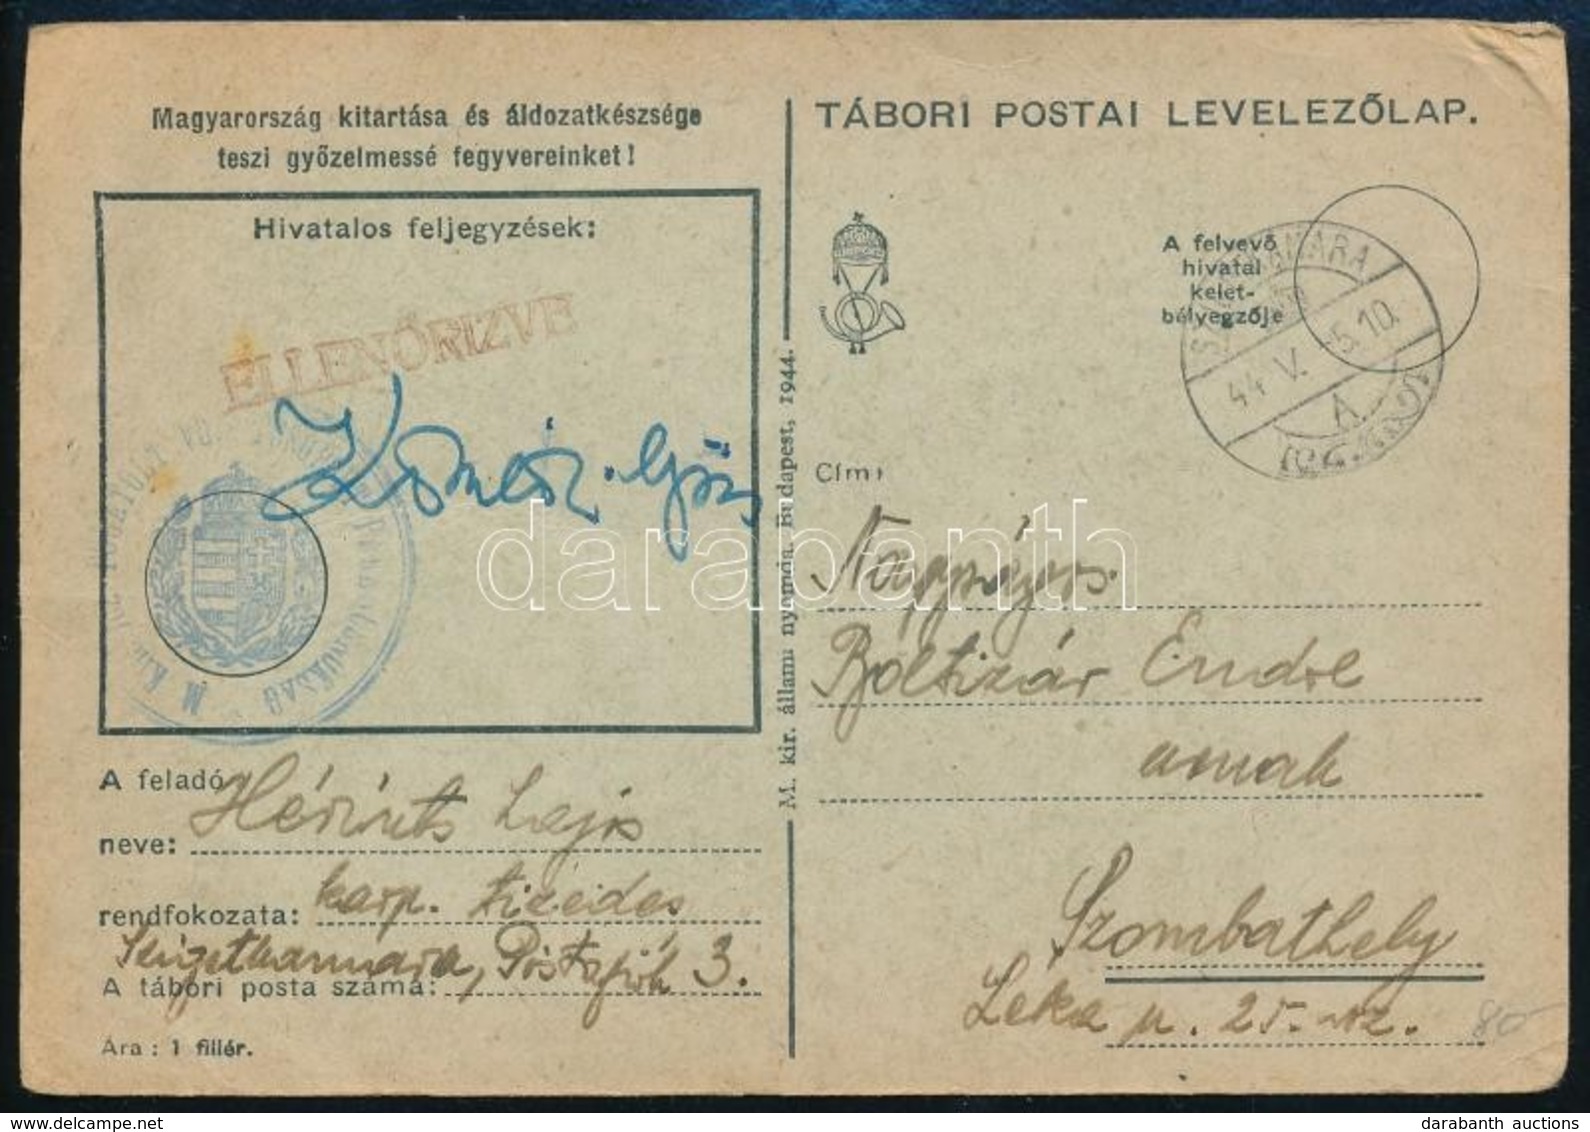 Magyarország kitartása és áldozatkészsége
teszi győzelmessé fegyvereinket!
Hivatalos feljegyzések:
ELLENŐRIZVE
A feladó
neve: Lajos
rendfokozata: karp. tizedes
Szigetkamara, Postafiók 3.
A tábori posta száma:
Ára: 1 fillér.
M. kir. állami nyomda. Budapest, 1944.
TÁBORI POSTAI LEVELEZŐLAP.
A felvevő
hivatal
kelet-
bélyegzője
44 V. -5 10
A
Cím:
Nagyságos
Boltizár Endre
urnak
Szombathely
Léka u. 25. sz.
80
darabanth
darabanth auctions